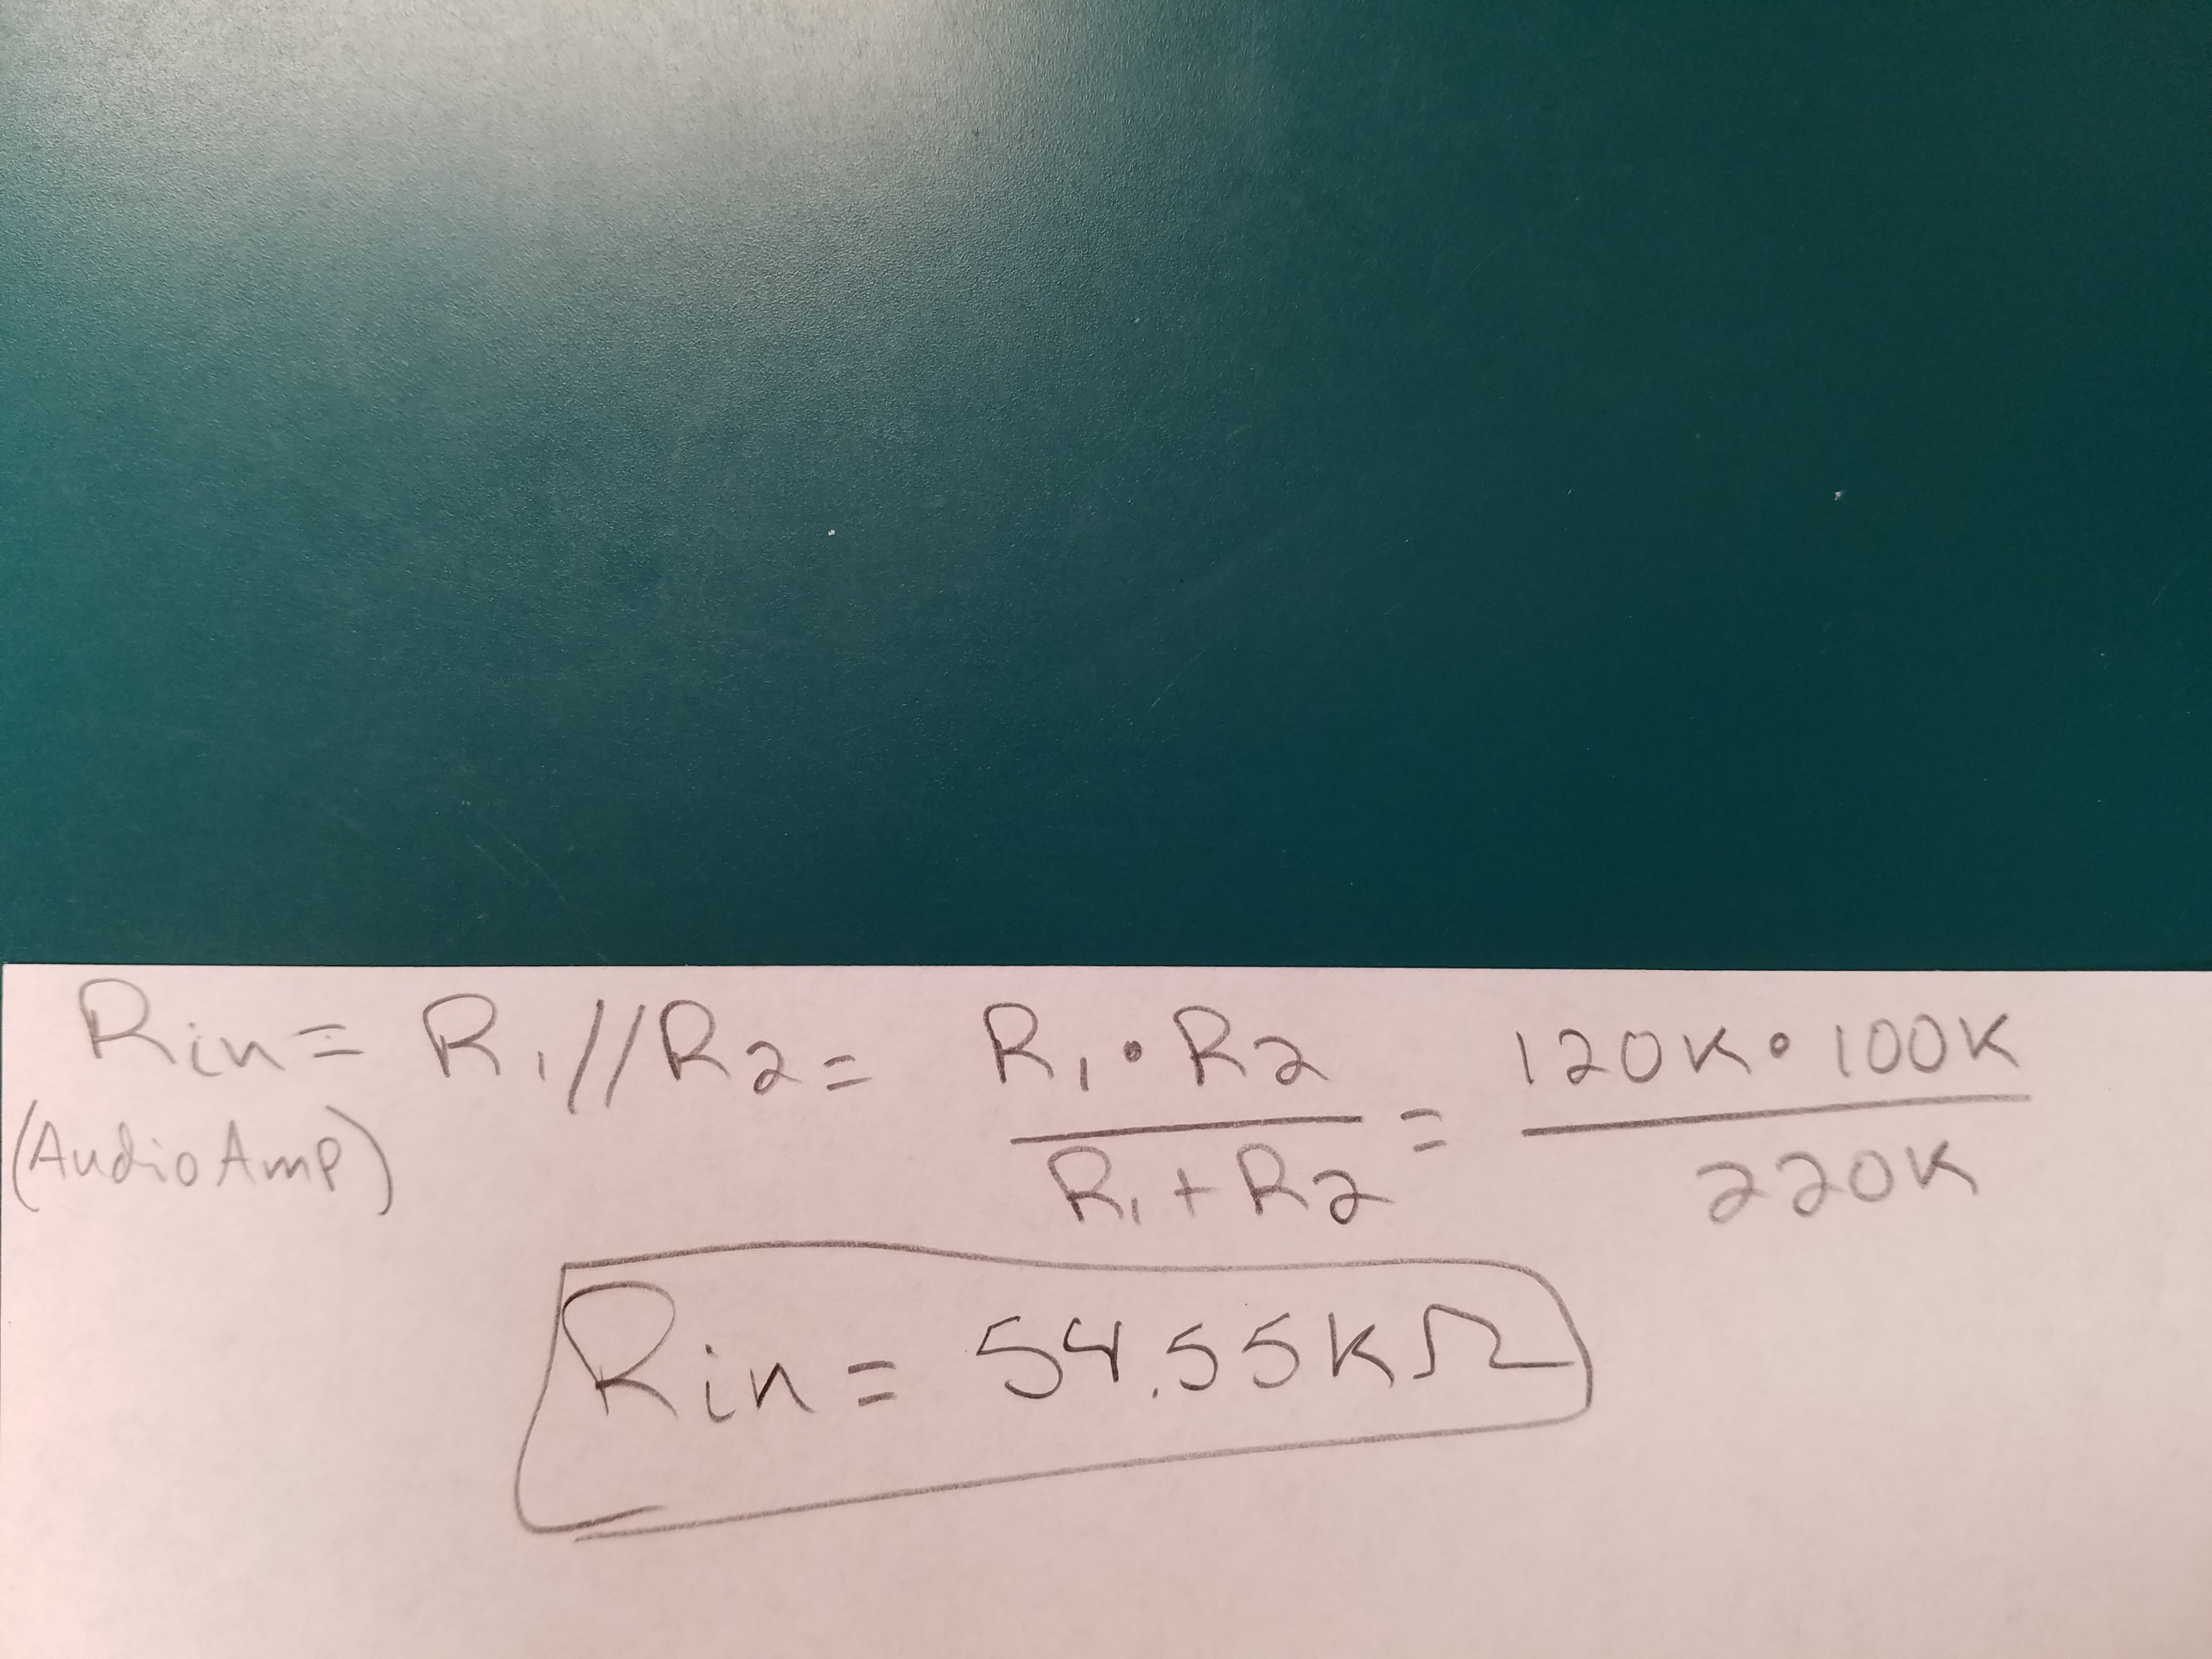 Rin = R1//R2 = R1•R2 / R1+R2 = 120K•100K / 220K
(Audio Amp)
Rin = 54.55KΩ